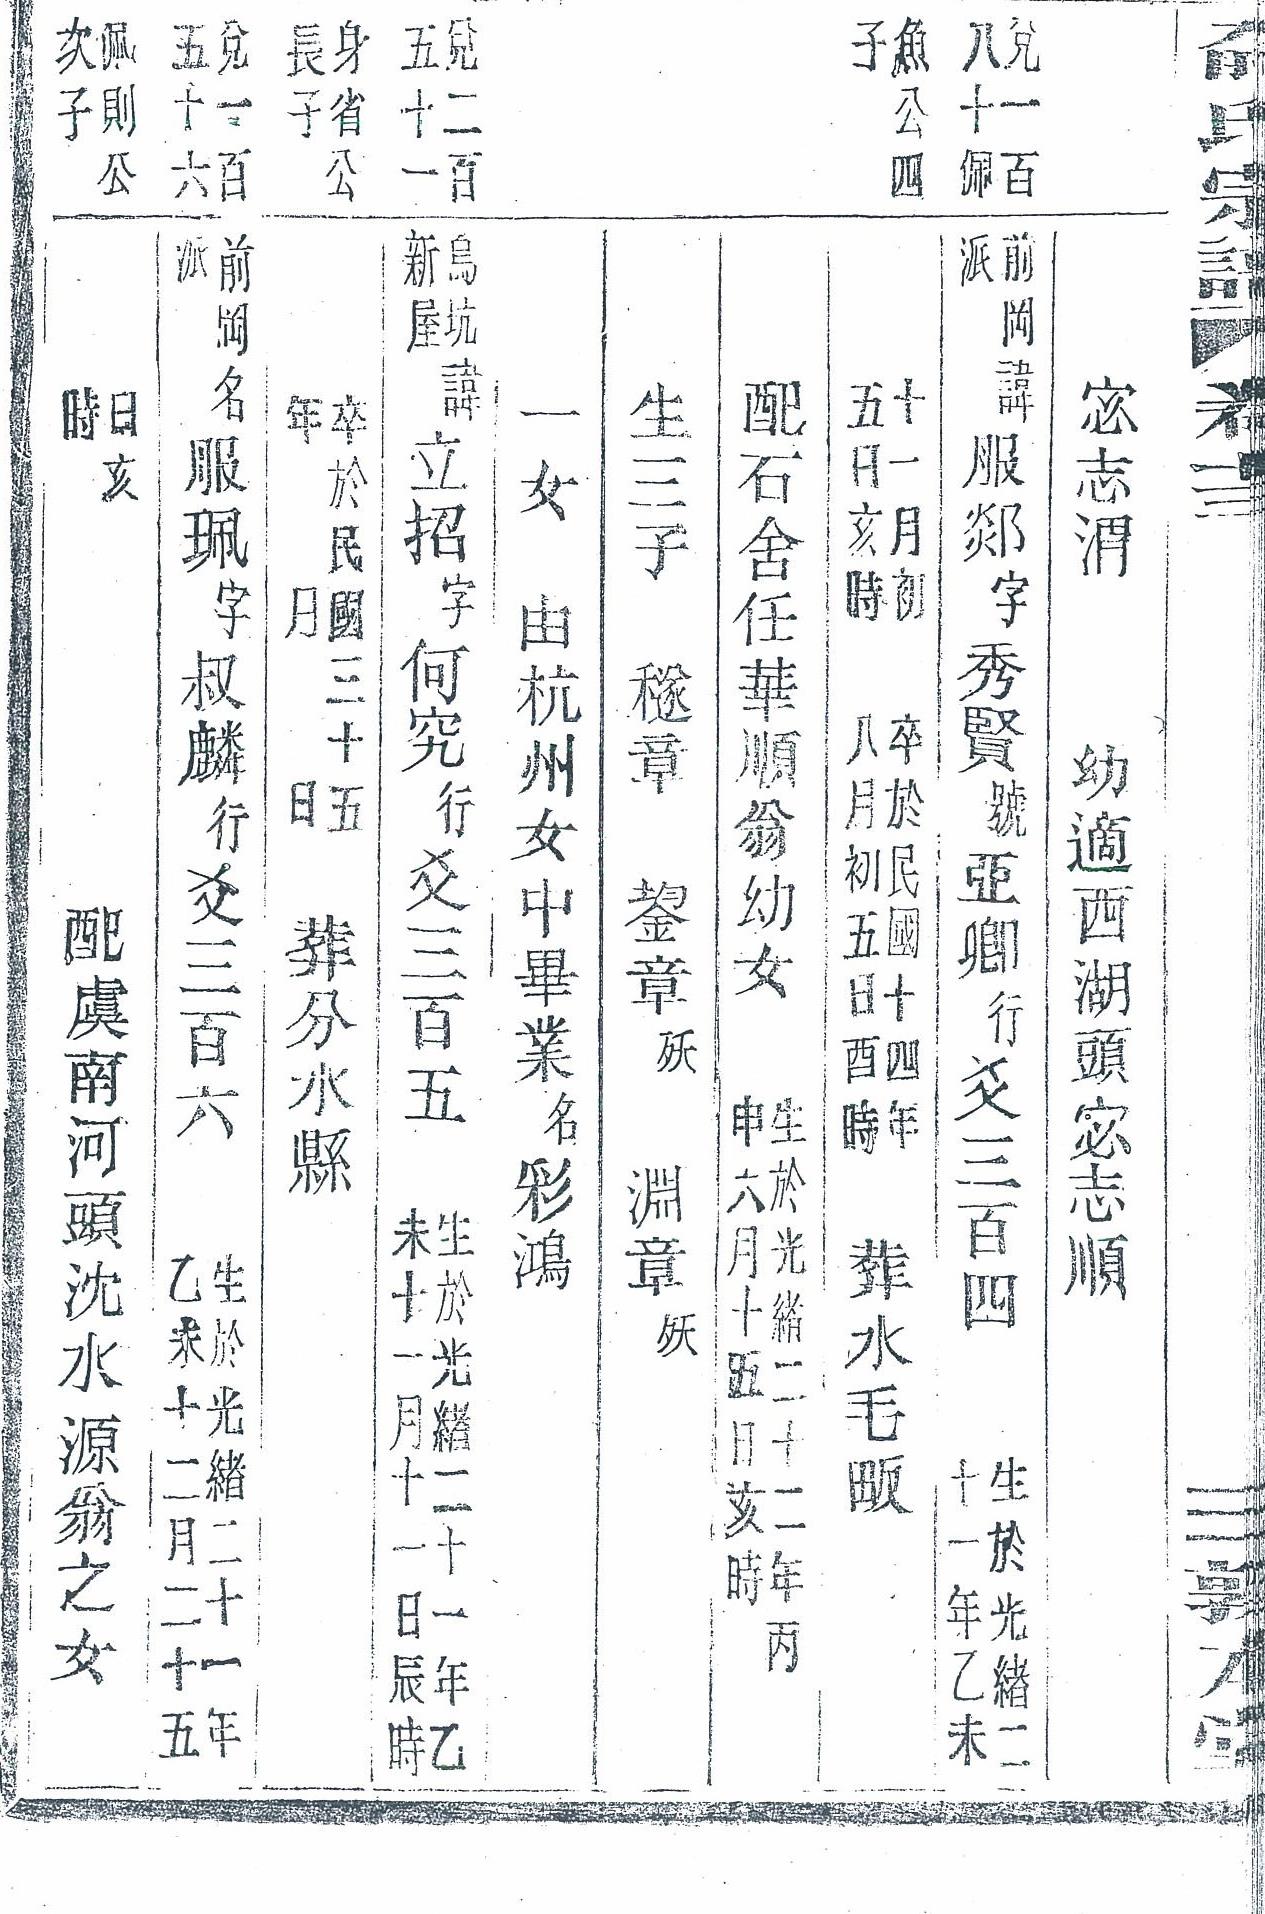 俞氏宗譜
卷三
三
宓志渭 幼適西湖頭宓志順
兌一百
八十佩
魚公四
子
前岡諱
派
服郯字秀賢號亞卿行爻三百四
生於光緒二
十一年乙未
十一月初
五日亥時
卒於民國十四年
八月初五日酉時
葬水毛畈
配石舍任華順翁幼女
生於光緒二十二年丙
申六月十五日亥時
生三子 穟章 鋆章 殀 淵章 殀
一女 由杭州女中畢業名彩鴻
兌二百
五十一
身省公
長子
烏坑諱
新屋
立招字何究行爻三百五
生於光緒二十一年乙
未十一月十一日辰時
卒於民國三十五
年 月 日
葬分水縣
兌一百
五十六
佩則公
次子
前岡名
派
服珮字叔麟行爻三百六
生於光緒二十一年
乙未十二月二十五
日亥
時
配虞南河頭沈水源翁之女